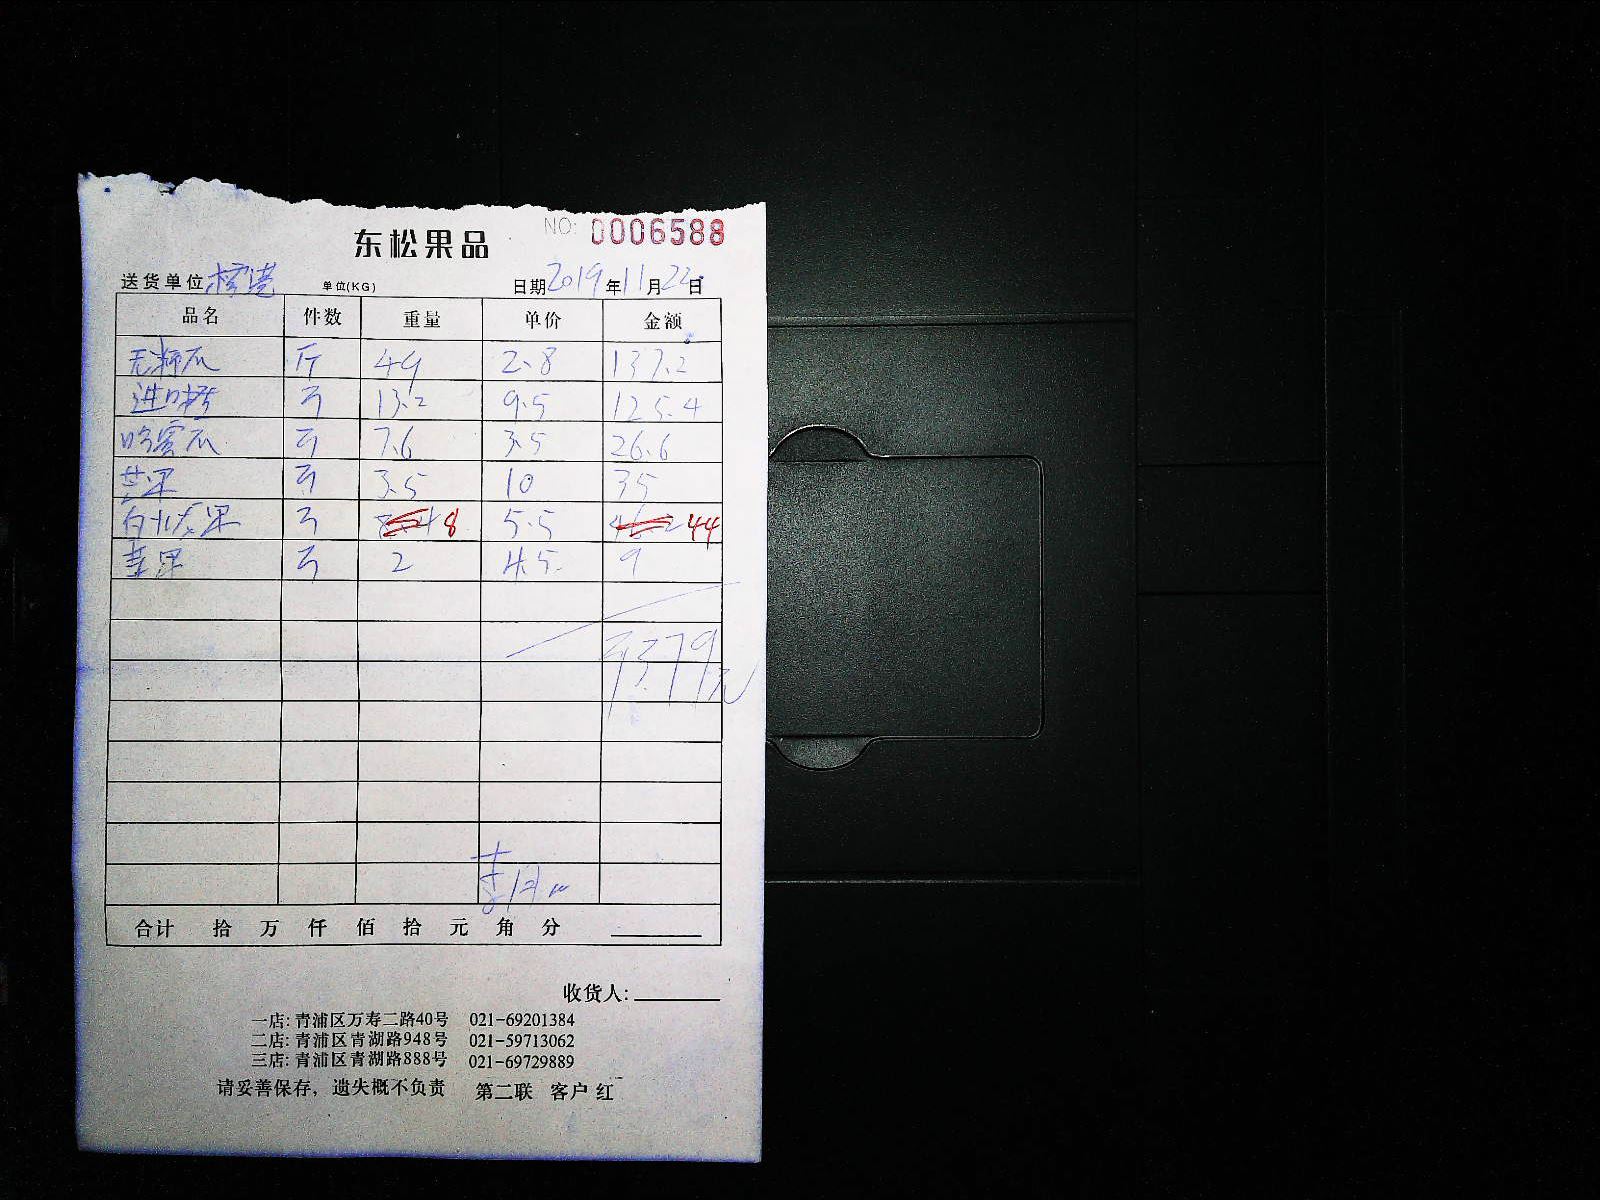 NO: 0006588
东松果品
送货单位 单位(KG) 日期2019年11月22日
品名 件数 重量 单价 金额
无籽瓜 斤 49 2.8 137.2
进口橙 13.2 9.5 125.4
哈蜜瓜 7.6 3.5 26.6
芒果 3.5 10 35
白火龙果 8 5.5 44
苹果 2 4.5 9
379元
合计 拾 万 仟 佰 拾 元 角 分
收货人:
一店: 青浦区万寿二路40号 021-69201384
二店: 青浦区青湖路948号 021-59713062
三店: 青浦区青湖路888号 021-69729889
请妥善保存，遗失概不负责 第二联 客户 红